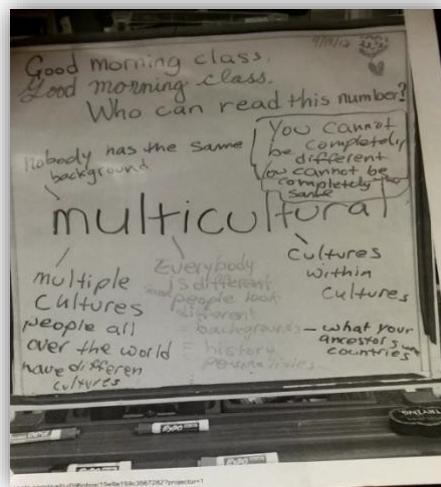 Good morning class.
Good morning class.
Who can read this number?
Nobody has the same
background
You cannot
be completely
different
You cannot be
completely
same
multicultural
multiple
cultures
people all
over the world
have differen
cultures
Everybody
is different
people look
different
backgrounds - what your
ancestors
countries
history
personalities
cultures
within
cultures
EXPO
EXPO
EXPO